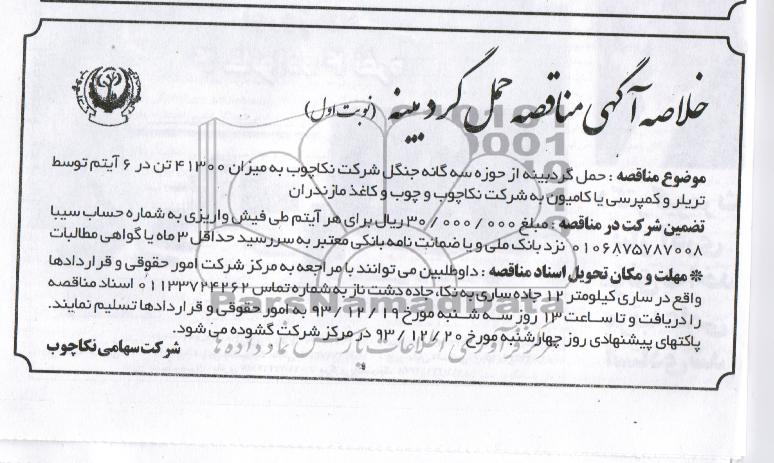 خلاصه آگهی مناقصه حمل گرده بینه (نوبت اول)
موضوع مناقصه : حمل گردبینه از حوزه سه گانه جنگل شرکت نکاچوب به میزان ۴۱۳۰۰ تن در ۶ آیتم توسط
تریلر و کمپرسی یا کامیون به شرکت نکاچوب و چوب و کاغذ مازندران
تضمین شرکت در مناقصه : مبلغ ۳۰/۰۰۰/۰۰۰ ریال برای هر آیتم طی فیش واریزی به شماره حساب سیبا
۰۱۰۶۸۷۵۷۸۷۰۰۸ نزد بانک ملی و یا ضمانت نامه بانکی معتبر به سررسید حداقل ۳ ماه یا گواهی مطالبات
* مهلت و مکان تحویل اسناد مناقصه : داوطلبین می توانند با مراجعه به مرکز شرکت امور حقوقی و قراردادها
واقع در ساری کیلومتر ۱۲ جاده ساری به نکا، جاده دشت ناز به شماره تماس ۰۱۱۳۳۷۲۴۲۶۲ اسناد مناقصه
را دریافت و تا ساعت ۱۳ روز سه شنبه مورخ ۹۳/۱۲/۱۹ به امور حقوقی و قراردادها تسلیم نمایند.
پاکتهای پیشنهادی روز چهارشنبه مورخ ۹۳/۱۲/۲۰ در مرکز شرکت گشوده می شود.
شرکت سهامی نکاچوب
ParsNamadData
مرکز فرآوری اطلاعات پارس نماد داده ها